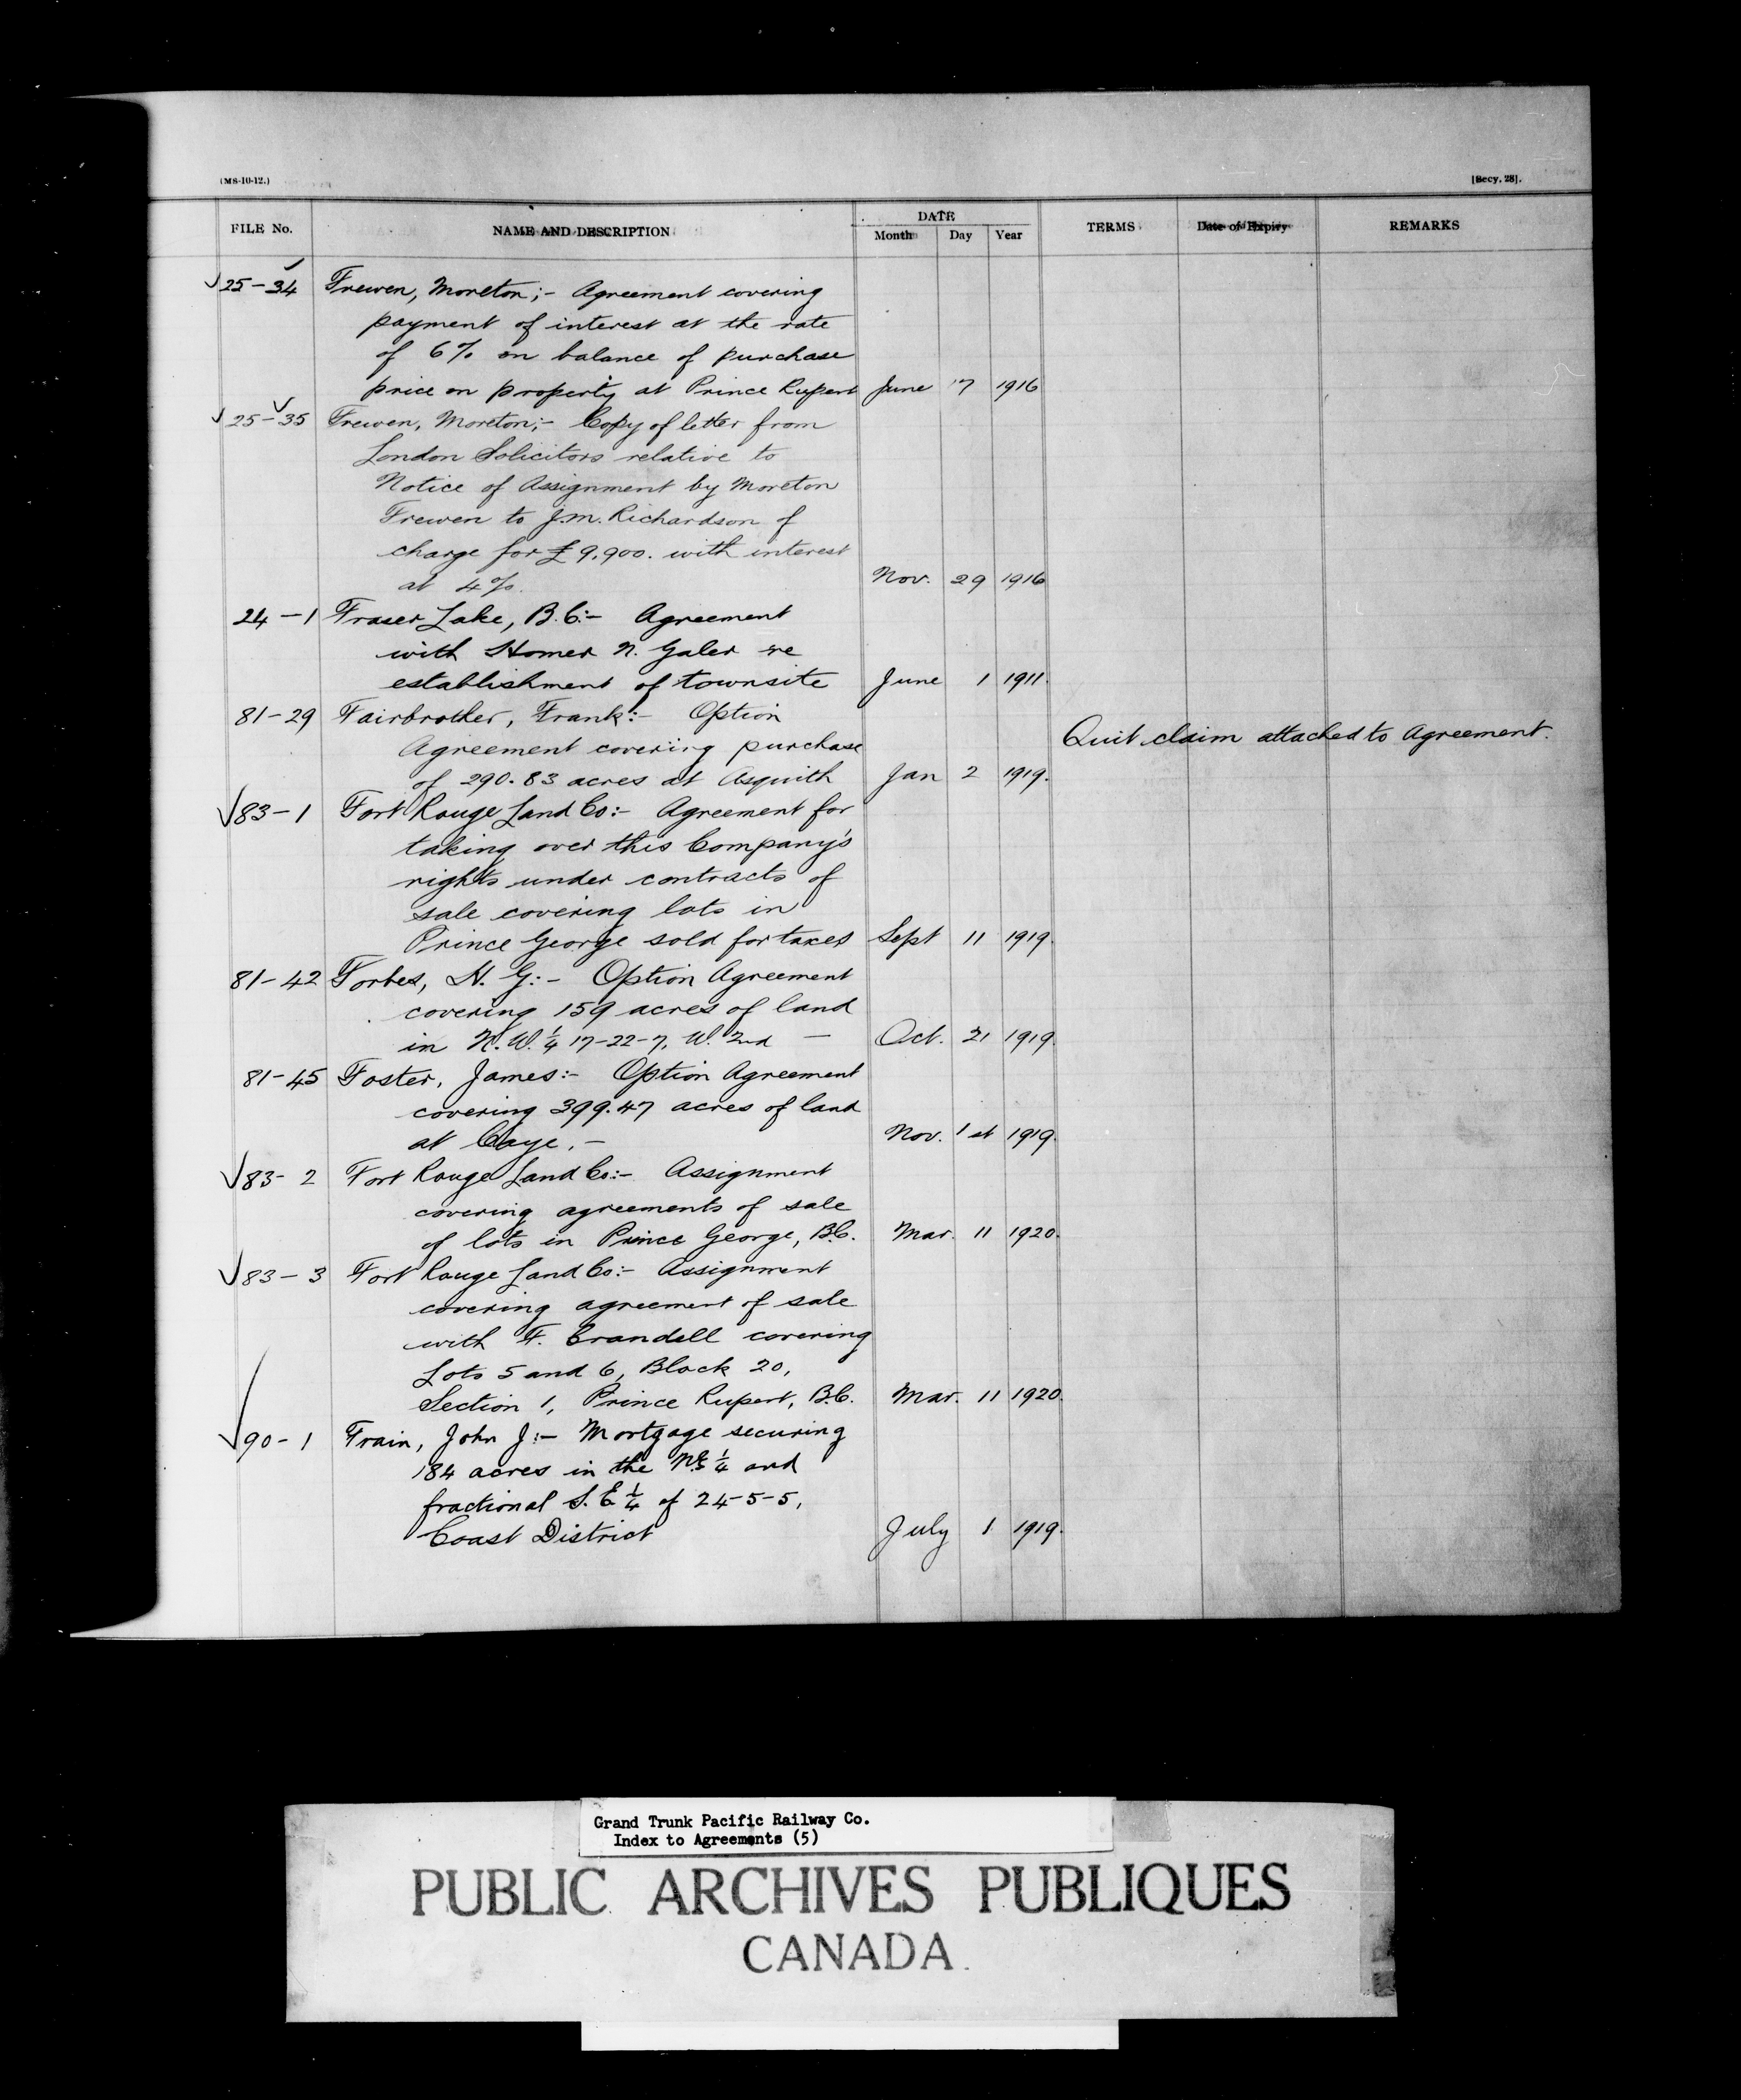 (MS-10-12.) [Secy. 28].
FILE No. NAME AND DESCRIPTION DATE Month Day Year TERMS Date of Expiry REMARKS
25-34 Frewen, Moreton;- Agreement covering
payment of interest at the rate
of 6% on balance of purchase
price on property at Prince Rupert June 7 1916
25-35 Frewen, Moreton;- Copy of letter from
London Solicitors relative to
Notice of Assignment by Moreton
Frewen to J.M. Richardson of
charge for £9,900. with interest
at 4%. Nov. 29 1916
24-1 Fraser Lake, B.C:- Agreement
with Homer N. Galer re
establishment of townsite June 1 1911.
81-29 Fairbrother, Frank:- Option
Agreement covering purchase Quit claim attached to Agreement.
of 290.83 acres at Asquith Jan 2 1919.
83-1 Fort Rouge Land Co:- Agreement for
taking over this Company's
rights under contracts of
sale covering lots in
Prince George sold for taxes Sept 11 1919.
81-42 Forbes, N. G:- Option Agreement
covering 159 acres of land
in N.W. ¼ 17-22-7, W. 2nd - Oct. 21 1919.
81-45 Foster, James:- Option Agreement
covering 399.47 acres of land
at Caye.- Nov. 1st 1919.
83-2 Fort Rouge Land Co:- Assignment
covering agreements of sale
of lots in Prince George, B.C. Mar. 11 1920.
83-3 Fort Rouge Land Co:- Assignment
covering agreement of sale
with F. Crandell covering
Lots 5 and 6, Block 20,
Section 1, Prince Rupert, B.C. Mar. 11 1920.
90-1 Frain, John J:- Mortgage securing
184 acres in the ¼ and
fractional S.E ¼ of 24-5-5,
Coast District July 1 1919.
Grand Trunk Pacific Railway Co.
Index to Agreements (5)
PUBLIC ARCHIVES PUBLIQUES
CANADA